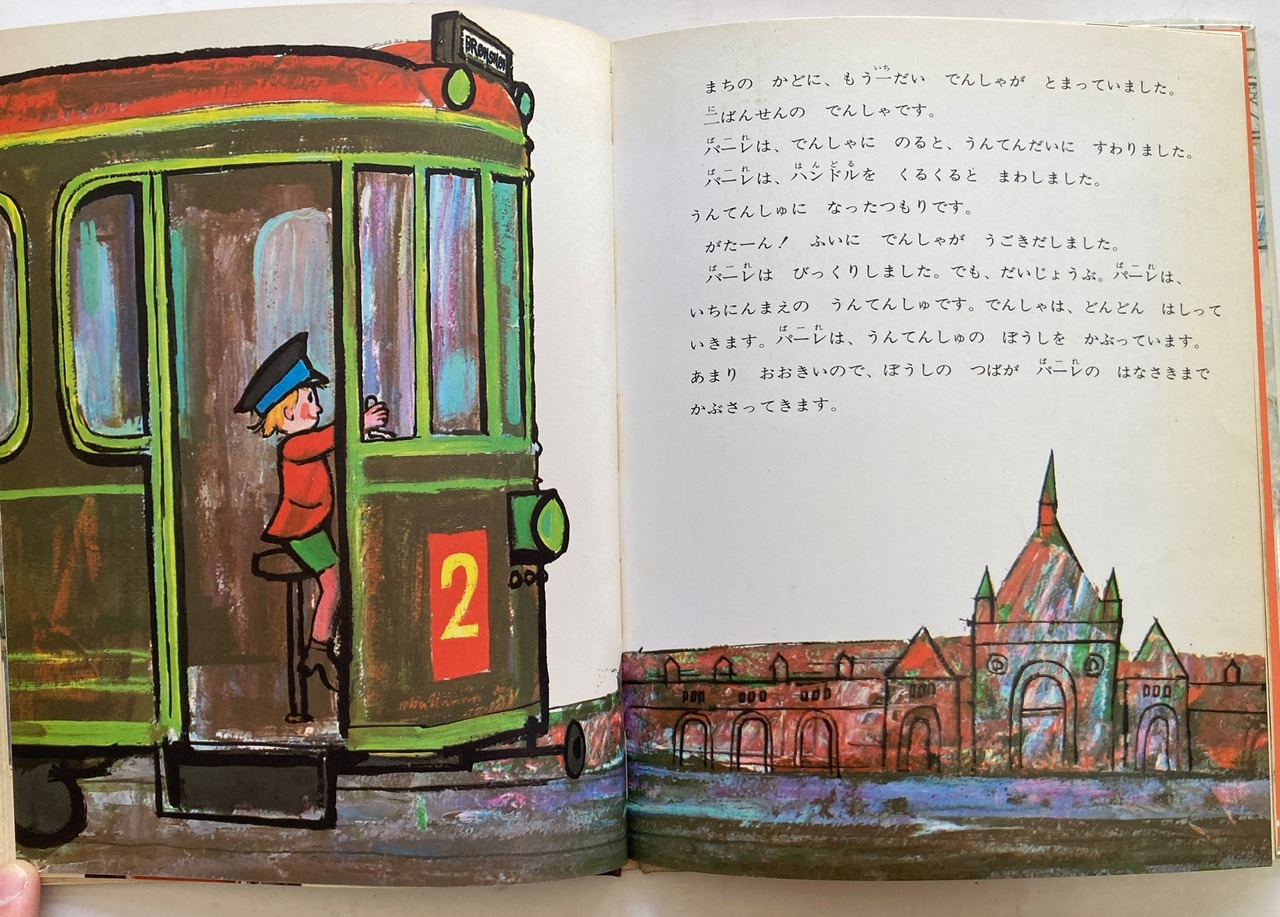 BRØNSHØJ
2
まちの　かどに、もう一だい　でんしゃが　とまっていました。
二ばんせんの　でんしゃです。
パーレは、でんしゃに　のると、うんてんだいに　すわりました。
パーレは、ハンドルを　くるくると　まわしました。
うんてんしゅに　なったつもりです。
がたーん！　ふいに　でんしゃが　うごきだしました。
パーレは　びっくりしました。でも、だいじょうぶ。パーレは、
いちにんまえの　うんてんしゅです。でんしゃは、どんどん　はしって
いきます。パーレは、うんてんしゅの　ぼうしを　かぶっています。
あまり　おおきいので、ぼうしの　つばが　パーレの　はなさきまで
かぶさってきます。